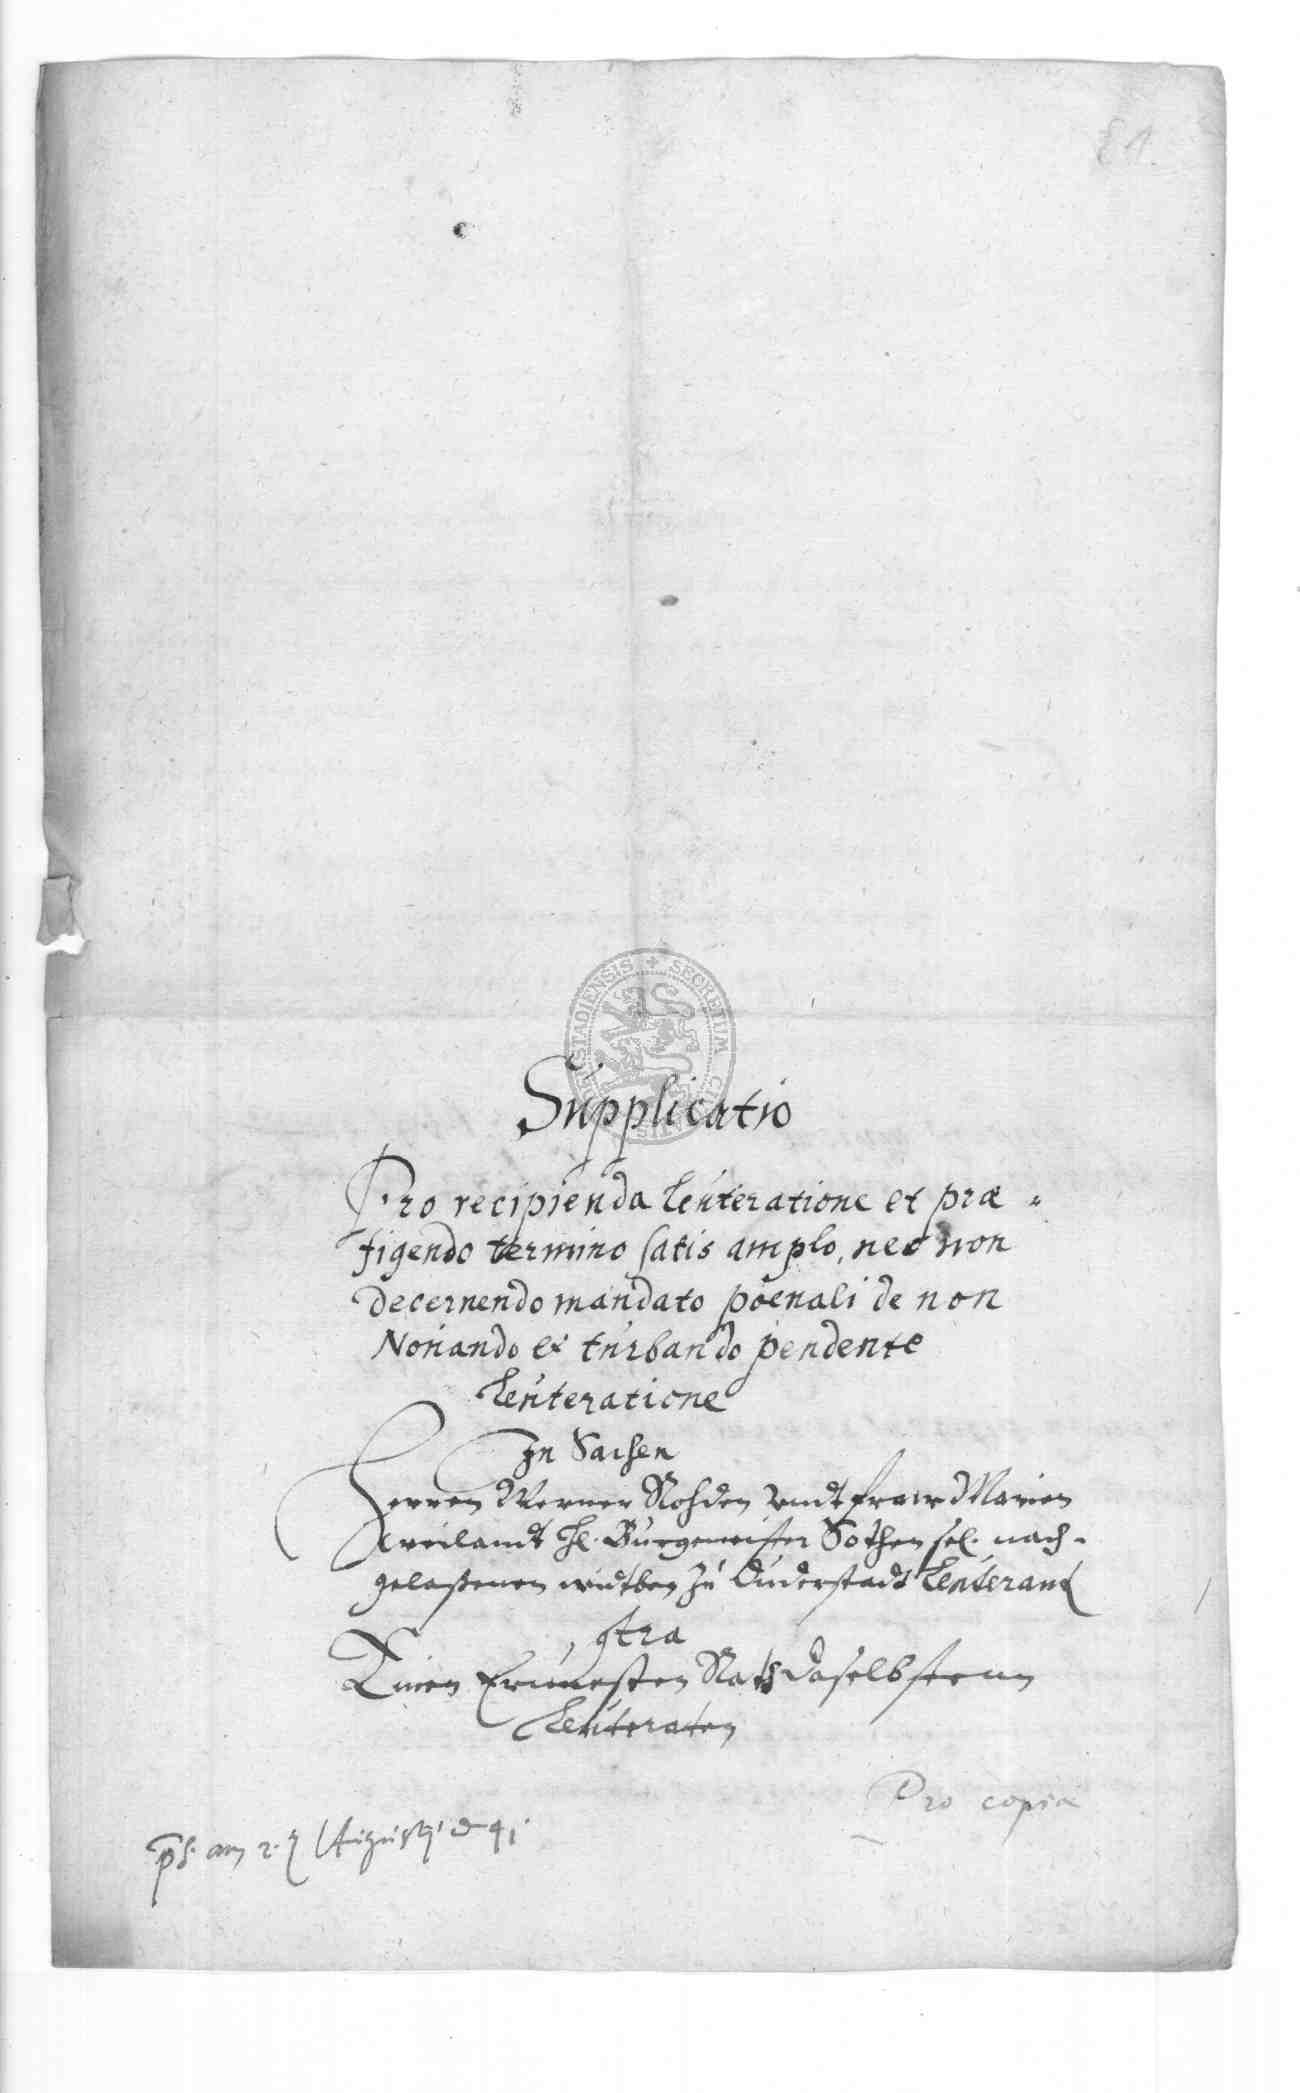 E 1.
STADIENSIS + SECRETUM
Supplicatio
Pro recipienda leüteratione et præ-
figendo termino satis amplo, nec non
decernendo mandato poenali de non
Nouando et turbando pendente
leüteratione
In Sachen
Herren Werner Rohden undt fraw Marien
weilandt Hl. Burgemeister Sothen sel. nach-
gelaßenen widtben zu Duderstadt leüterant
ctra
Einen Ernuesten Rath daselbstenn
leüteraten
Pro copia
ps. am 2. Augusti 41.